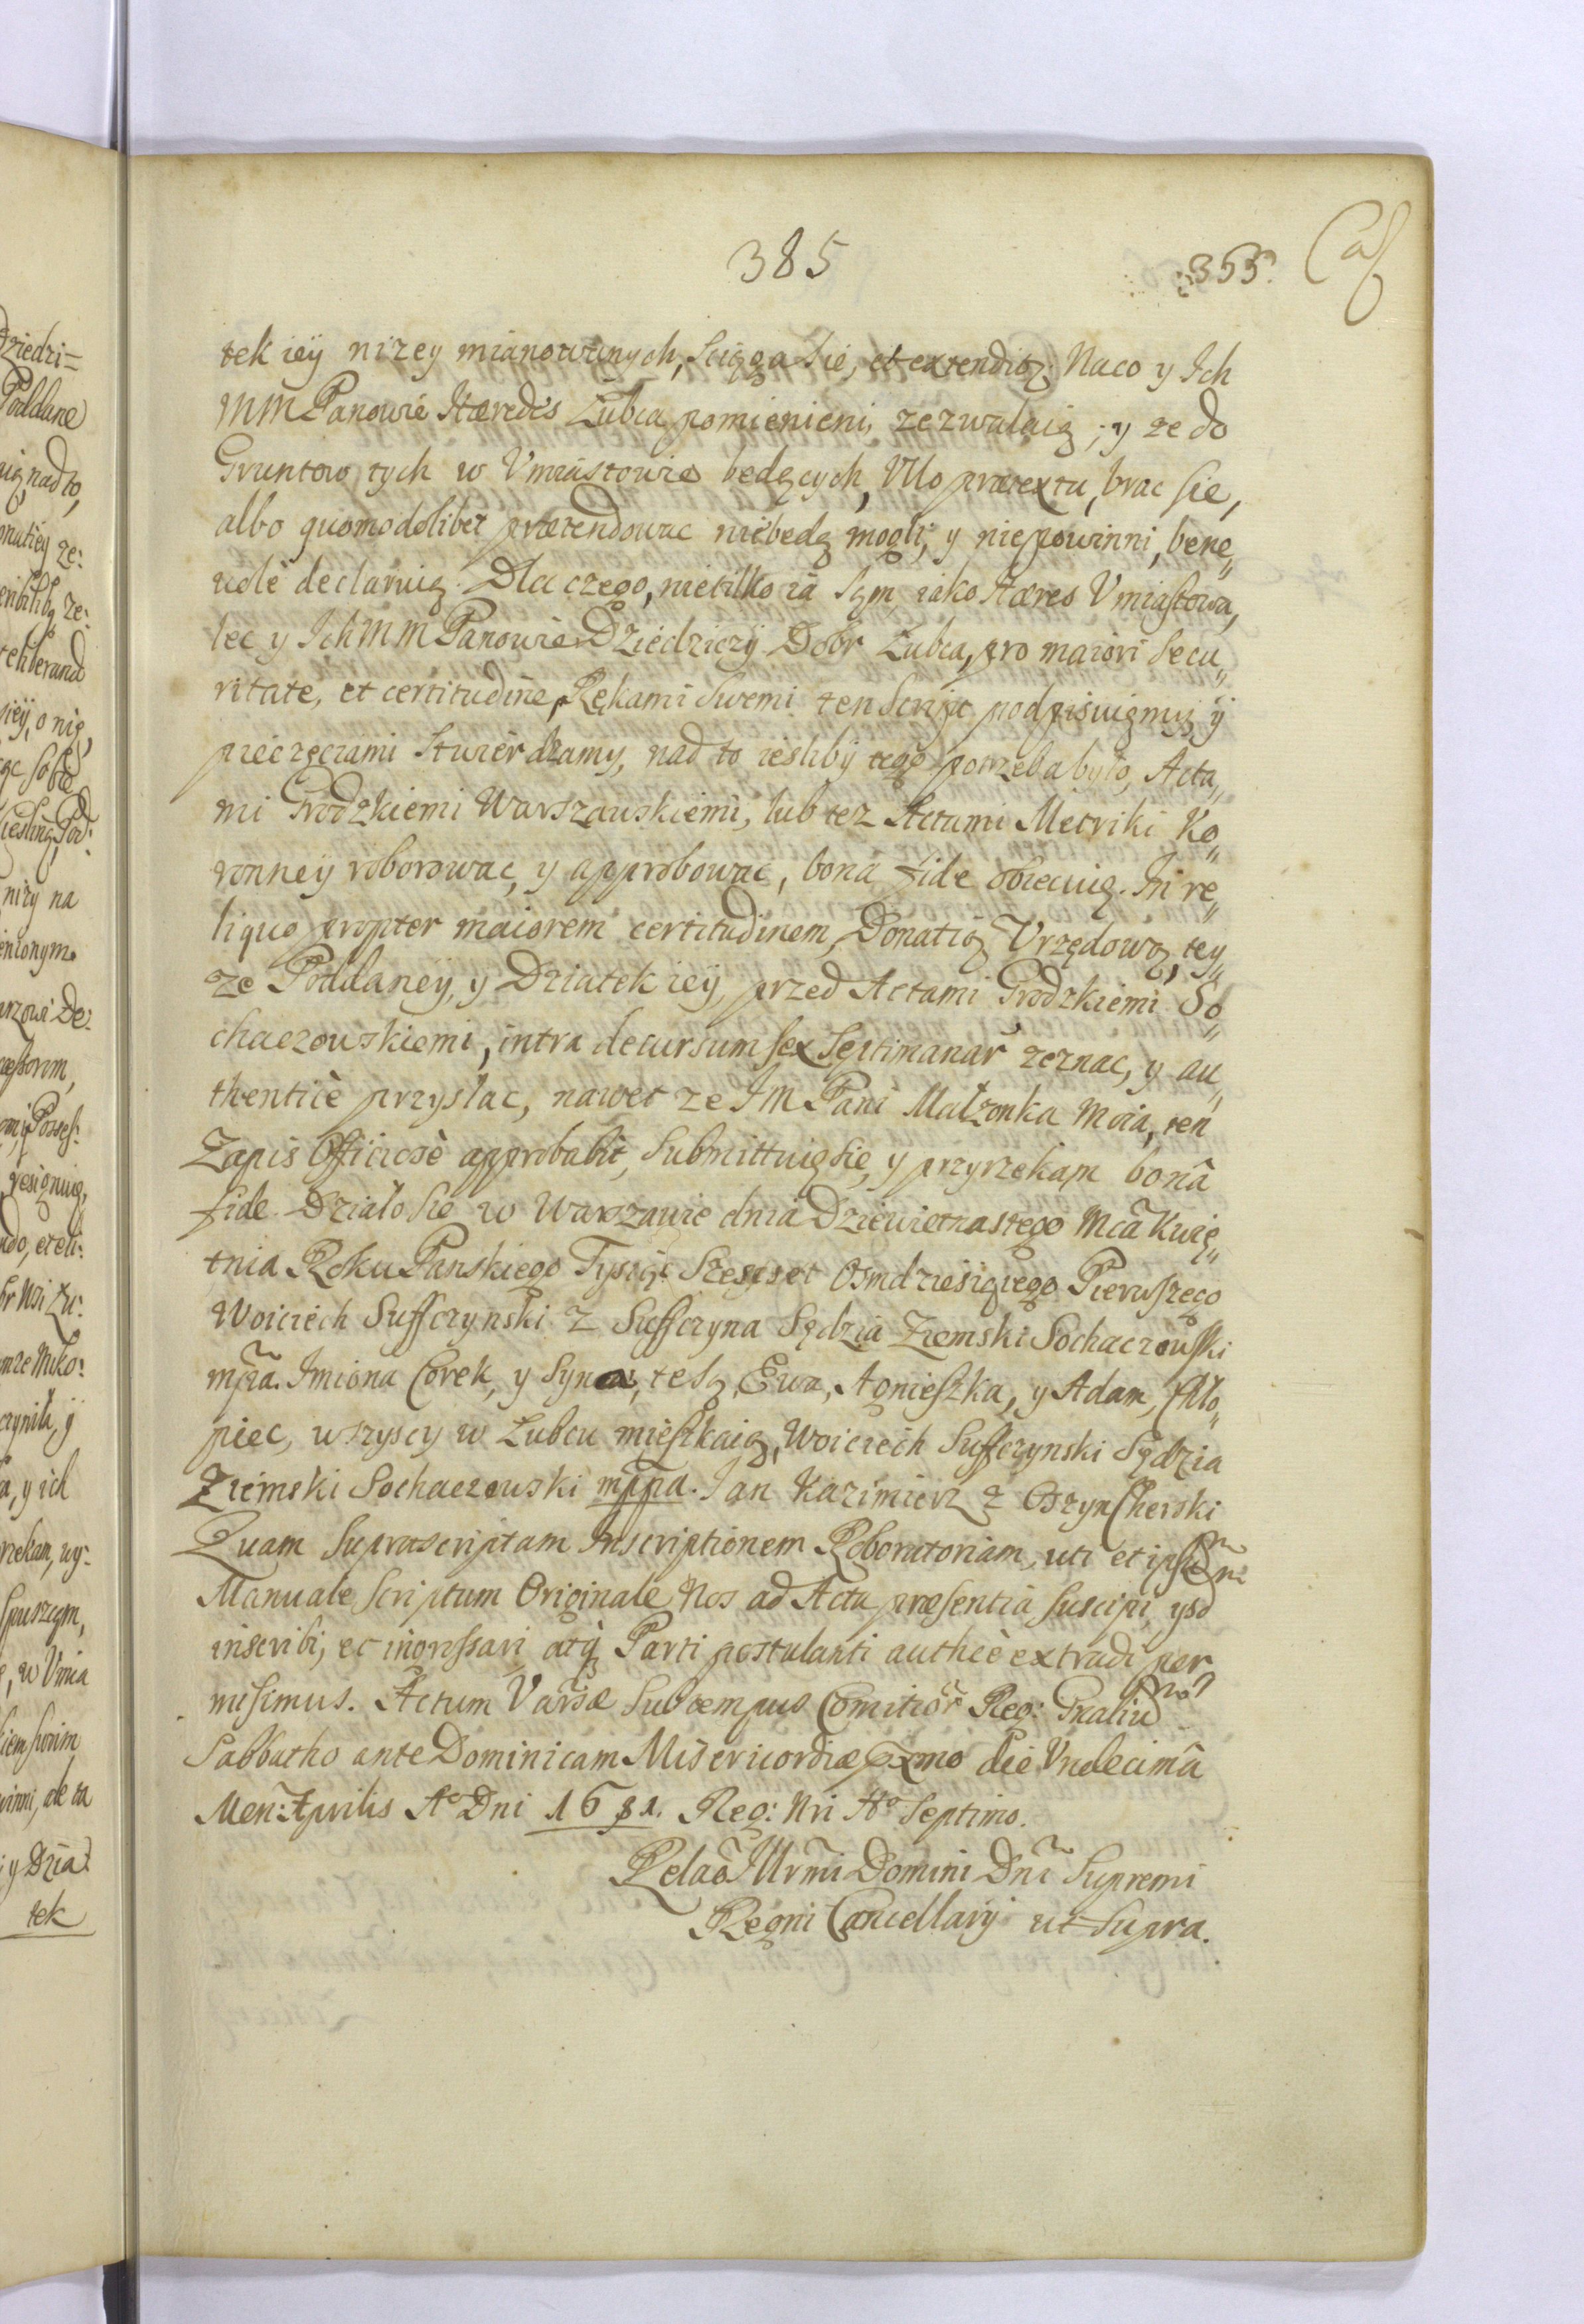 385
355.
tek iey nizey mianowanych, sciąga się, et extenditq. Naco y Ich
MM Panowie Hæredes Zubca pomienieni, zezwalaią; y ze do
Gruntow tych w Vmiastowie będących, Vllo prætextu, brac się,
albo quomodolibet prætendowac niebedą mogli; y niepowinni, bene
uole declaruią. Dla czego, nietilko ia sąm, iako Hæres Vmiastowa,
lec y Ich MM Panowie Dziedziczy Dobr Zubca, pro maiori secu
ritate, et certitudine, Rękami swemi ten script podpisuiemy, y
pieczęciami stwierdzamy, nad to ieśliby tego potrzeba było, Acta
mi Grodzkiemi Warszauskiemi, lub tez Actami Metriki Ko
ronney roborowac, y approbowac, bona fide obiecuią. In re
liquo propter maiorem certitudinem, Donatią Vrzędową, tey
ze Poddaney, y Dziatek iey, przed Actami Grodzkiemi So
chaczouskiemi, intra decursum sex septimanar zeznac, y au
thenticè przysłac, nawet ze JM Pani Małzonka Moia, ten
Zapis Officiosè approbabit, submittuię się, y przyrzekam bonâ
fide. Działo się w Warszawie dnia Dziewietnastego Mca Kwie
tnia Roku Panskiego Tysiąc Szescset Osmdziesiątego Pierwszego
Woiciech Suffczynski z Suffczyna Sędzia Ziemski Sochaczouski
mpra. Imiona Corek, y Syna, te są, Ewa, Agnieszka, y Adam, Chło
piec, wszyscy w Zubcu mieszkaią, Woiciech Suffczynski Sędzia
Ziemski Sochaczouski mppa. Jan Kazimierz z Oszyn Cherski
Quam suprascriptam Inscriptionem Roboratoriam, uti et ipsum
Manuale scriptum Originale Nos ad Acta præsentia suscipi, ysd
inscribi, et ingrossari atq Parti postulanti authcè extradi per
misimus. Actum Varsæ sub tempus Comitior Reg: Gnaliu
Sabbatho ante Dominicam Misericordiæ pxmo die Vndecimâ
Men: Aprilis Ao Dni 1681. Reg: Nri Ao septimo.
Relaõ Illrmi Domini Dni Supremi
Regni Cancellarij ut supra.
Dziedzi=
Poddane
nad to,
o nią,
nizy na
y ich
w Vmia
y Dzia
tek